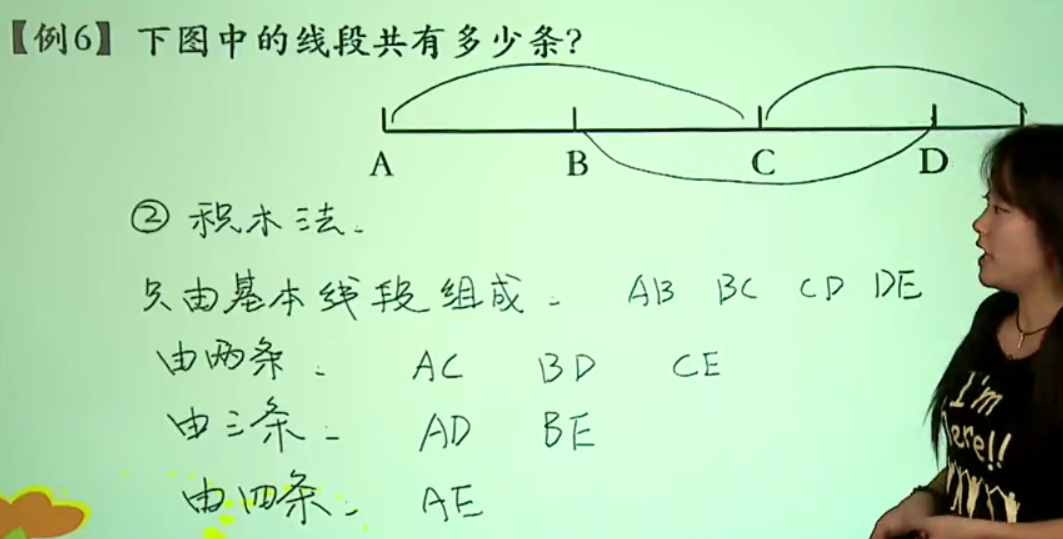 【例6】下图中的线段共有多少条?
A B C D
② 积木法:
只由基本线段组成: AB BC CD DE
由两条: AC BD CE
由三条: AD BE
由四条: AE
I'm
ere!!